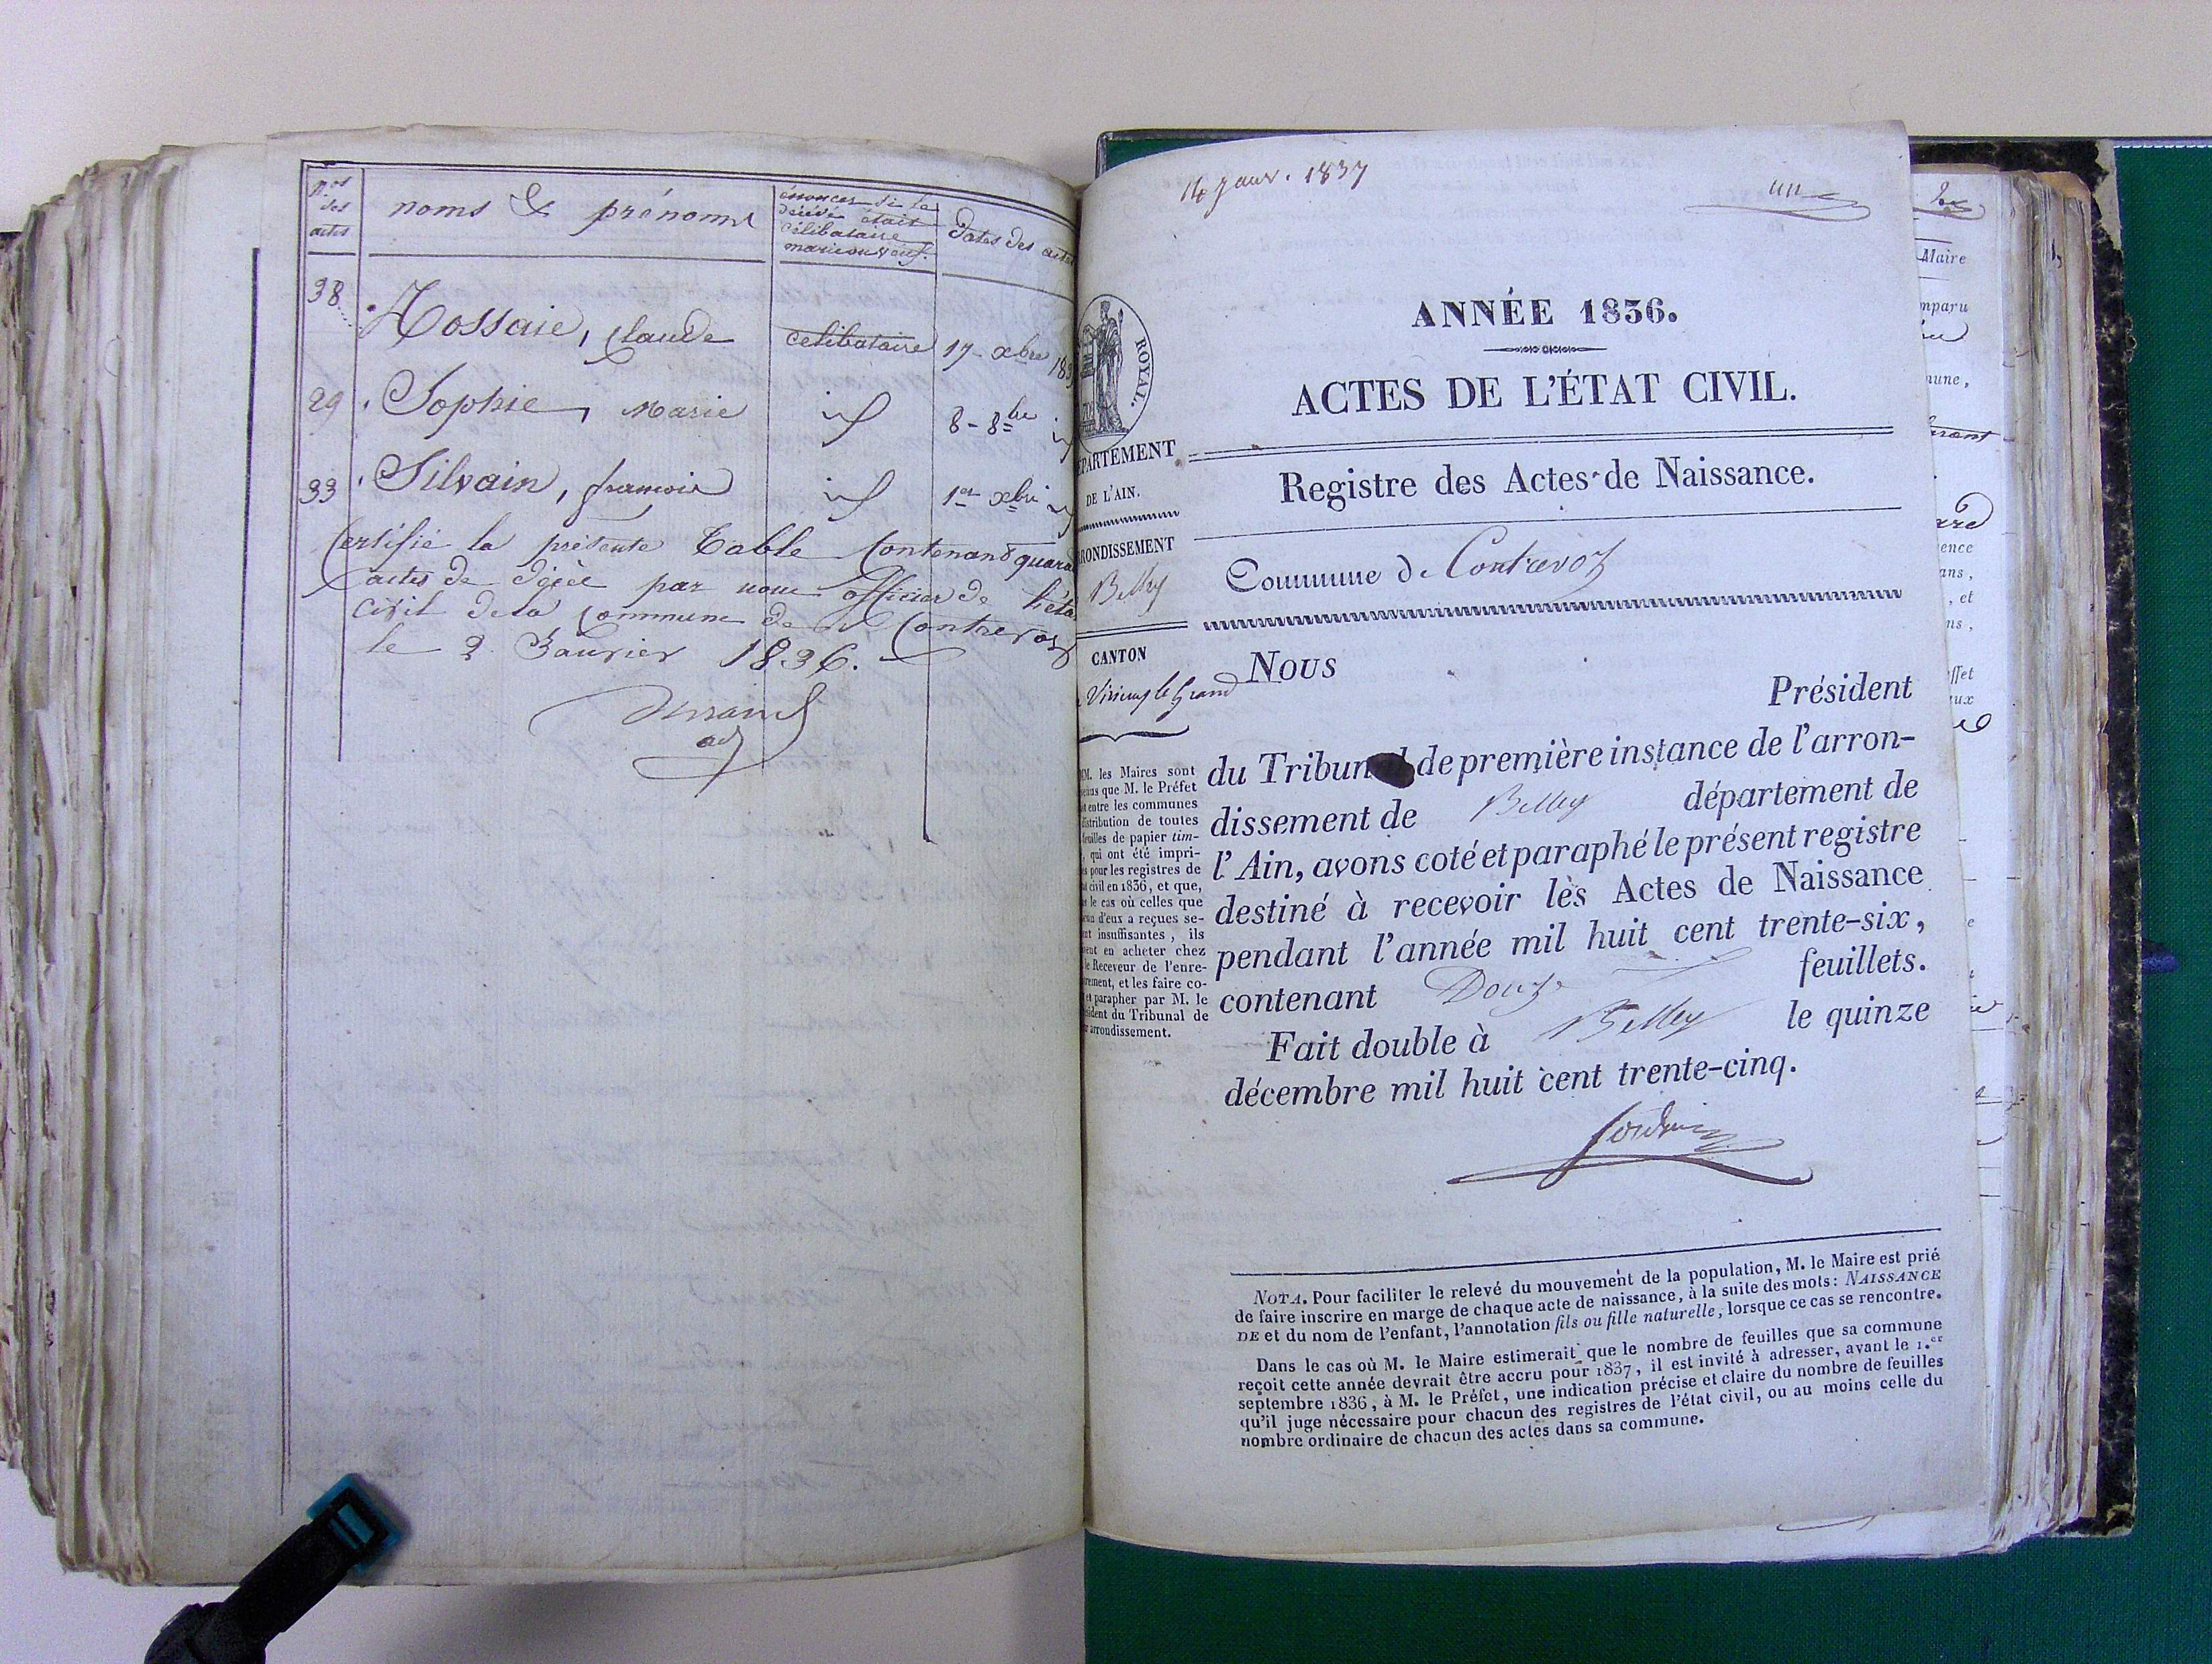 Nos des actes
noms & prénoms
énoncer si le
décédé était
célibataire
marié ou veuf.
dates des actes
38
Hossaie, Claude
célibataire
17 xbre 183
29
Sophie, Marie
id
8 - 8bre id
33
Silvain, françois
id
1er xbre id
Certifié la présente Table Contenant quara
actes de décès par nous officier de l'éta
civil de la Commune de Contrevoz
le 2 Janvier 1836.
Durand
adj
14 janv. 1837
un
ROYAL.
ANNÉE 1836.
ACTES DE L'ÉTAT CIVIL.
Registre des Actes de Naissance.
Commune de Contrevoz
ÉPARTEMENT
DE L'AIN.
RONDISSEMENT
Belley
CANTON
Virieu le Grand
MM. les Maires sont
nus que M. le Préfet
entre les communes
distribution de toutes
feuilles de papier tim-
, qui ont été impri-
s pour les registres de
civil en 1836, et que,
le cas où celles que
un d'eux a reçues se-
nt insuffisantes, ils
vent en acheter chez
le Receveur de l'enre-
rement, et les faire co-
et parapher par M. le
sident du Tribunal de
arrondissement.
NOUS
Président
du Tribunal de première instance de l'arron-
dissement de Belley département de
l'Ain, avons coté et paraphé le présent registre
destiné à recevoir les Actes de Naissance
pendant l'année mil huit cent trente-six,
contenant Douze feuillets.
Fait double à Belley le quinze
décembre mil huit cent trente-cinq.
NOTA. Pour faciliter le relevé du mouvement de la population, M. le Maire est prié
de faire inscrire en marge de chaque acte de naissance, à la suite des mots: NAISSANCE
DE et du nom de l'enfant, l'annotation fils ou fille naturelle, lorsque ce cas se rencontre.
Dans le cas où M. le Maire estimerait que le nombre de feuilles que sa commune
reçoit cette année devrait être accru pour 1837, il est invité à adresser, avant le 1.er
septembre 1836, à M. le Préfet, une indication précise et claire du nombre de feuilles
qu'il juge nécessaire pour chacun des registres de l'état civil, ou au moins celle du
nombre ordinaire de chacun des actes dans sa commune.
Maire
mparu
mune,
ence
ans,
, et
ns,
ffet
ux